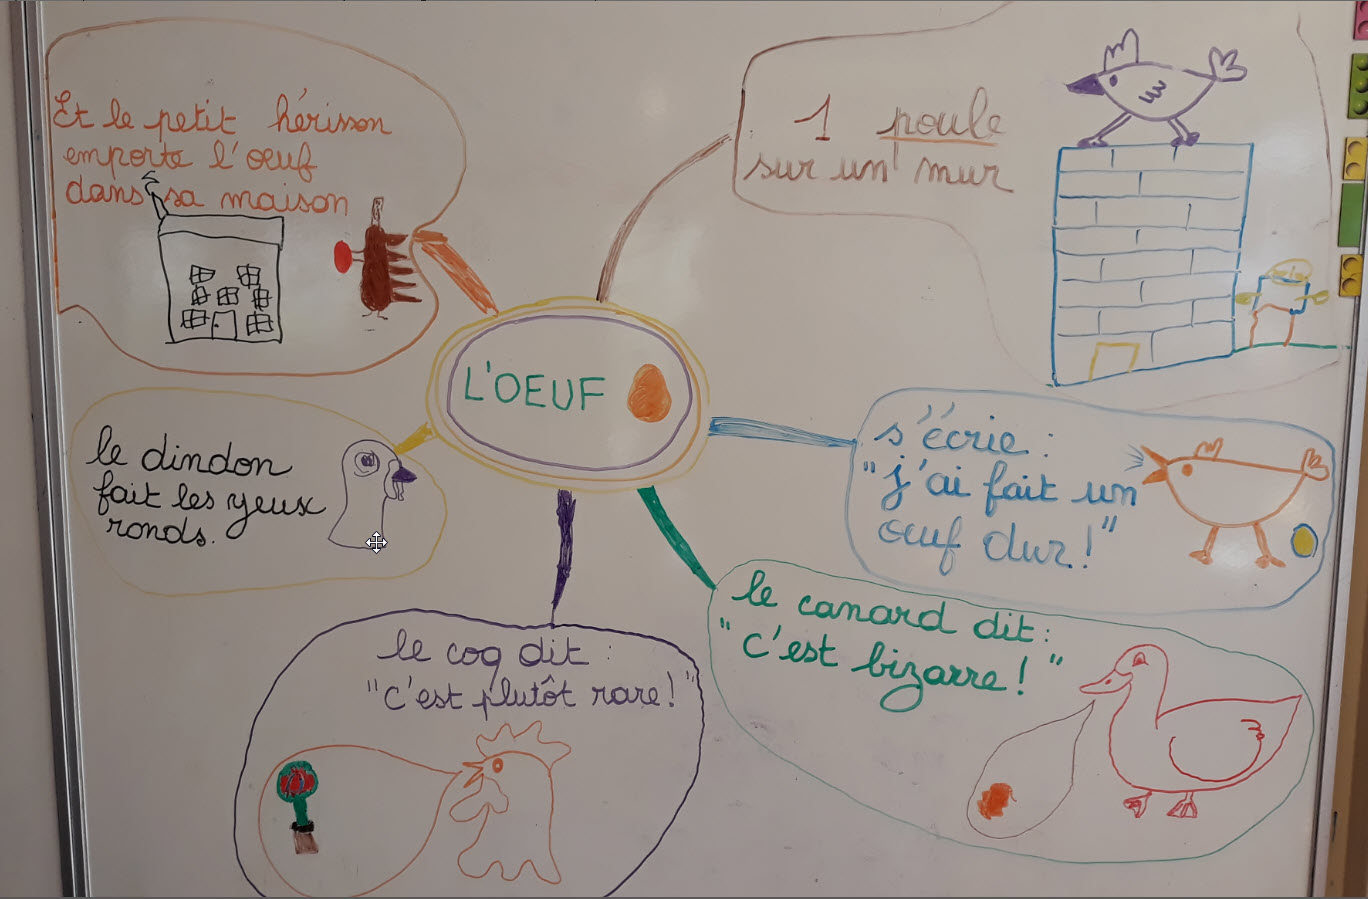 L'OEUF
1 poule
sur un mur
s'écrie :
"j'ai fait un
oeuf dur !"
le canard dit :
"c'est bizarre ! "
le coq dit :
"c'est plutôt rare ! "
le dindon
fait les yeux
ronds.
Et le petit hérisson
emporte l'oeuf
dans sa maison